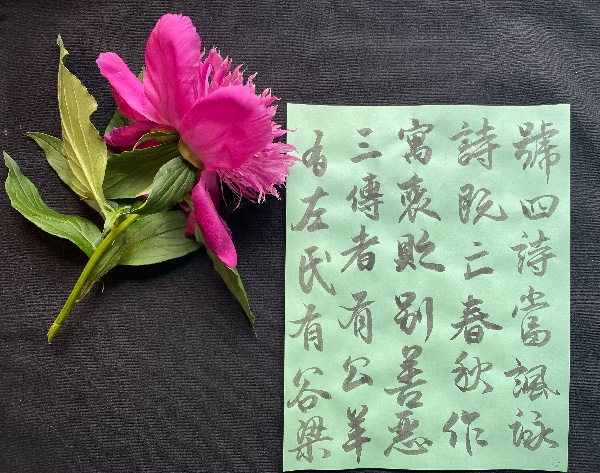 號四詩當諷詠
詩既亡春秋作
寓褒貶別善惡
三傳者有公羊
有左氏有谷梁